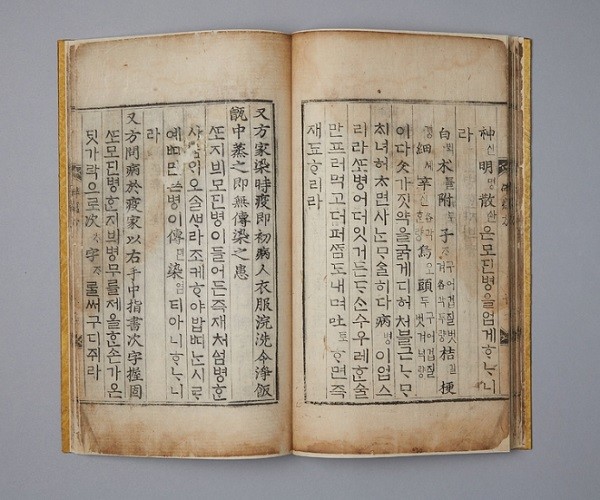 神신明명散산은모딘병을업게ᄒᆞᄂᆞ니
라
白朮튤附부子ᄌᆞ구어겁질벗겨각두량桔길梗
경細셰辛신각ᄒᆞᆫ량烏오頭두구어겁질벗겨넉량
이다ᄉᆞᆺ가짓약을굵게디허처블근ᄂᆞᄆᆞ
채녀허ᄎᆞ면사ᄂᆞᆫᄆᆞᄉᆞᆯ히다病병이업스
리라ᄯᅩ병어더잇거든ᄃᆞᄉᆞᆫ수우레ᄒᆞᆫ술
만프러먹고더퍼ᄯᆞᆷ도내며吐토ᄒᆞ면즉
재됴ᄒᆞ리라
又方家染時疫即初病人衣服浣洗令淨飯
甑中蒸之即無傳染之患
ᄯᅩ지븨모딘병이들어든즉재처ᅀᅥᆷ병ᄒᆞᆫ
사ᄅᆞᄆᆡ오ᄉᆞᆯᄲᆞ라조케ᄒᆞ야밥ᄠᅵᄂᆞᆫ시르
예ᄠᅵ면즉병이傳뎐染티아니ᄒᆞᄂᆞ니
라
又方問病於疫家以右手中指書次字握固
ᄯᅩ모딘병ᄒᆞᆫ지븨병무를제올ᄒᆞᆫ손가온
딧가락으로次ᄎᆞ字ᄌᆞᄅᆞᆯ써구디쥐라